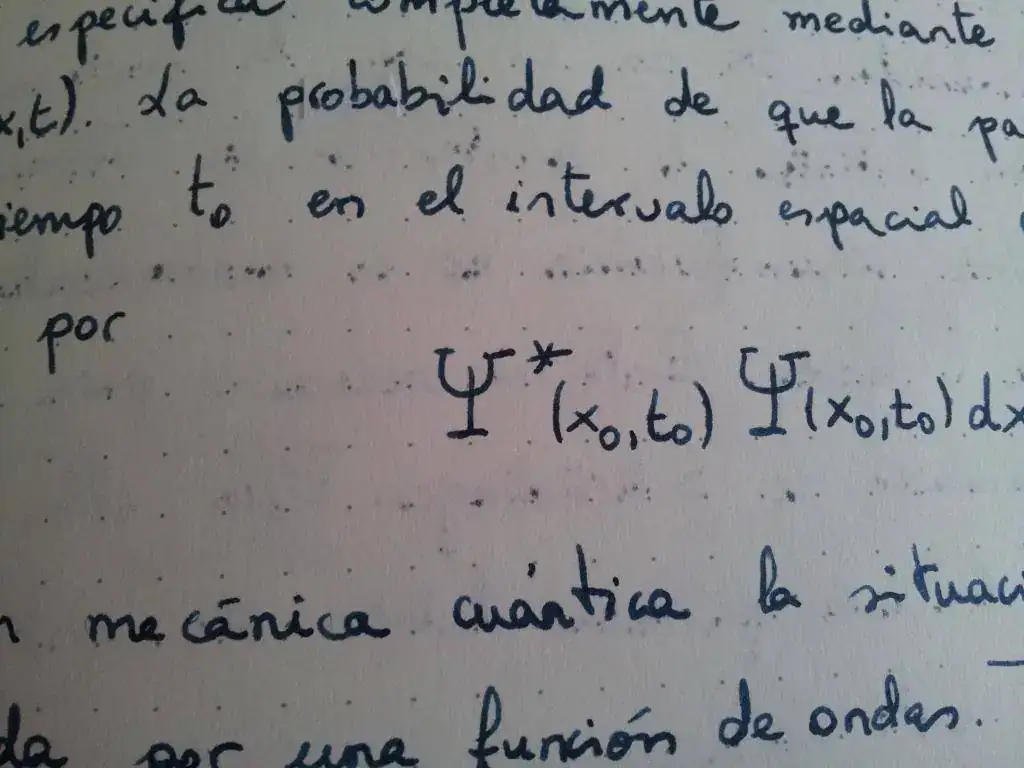 especifica completamente mediante
x,t). La probabilidad de que la pa
iempo t₀ en el intervalo espacial
por
Ψ*(x₀,t₀) Ψ(x₀,t₀) dx
n mecánica cuántica la situaci
da por una función de ondas.